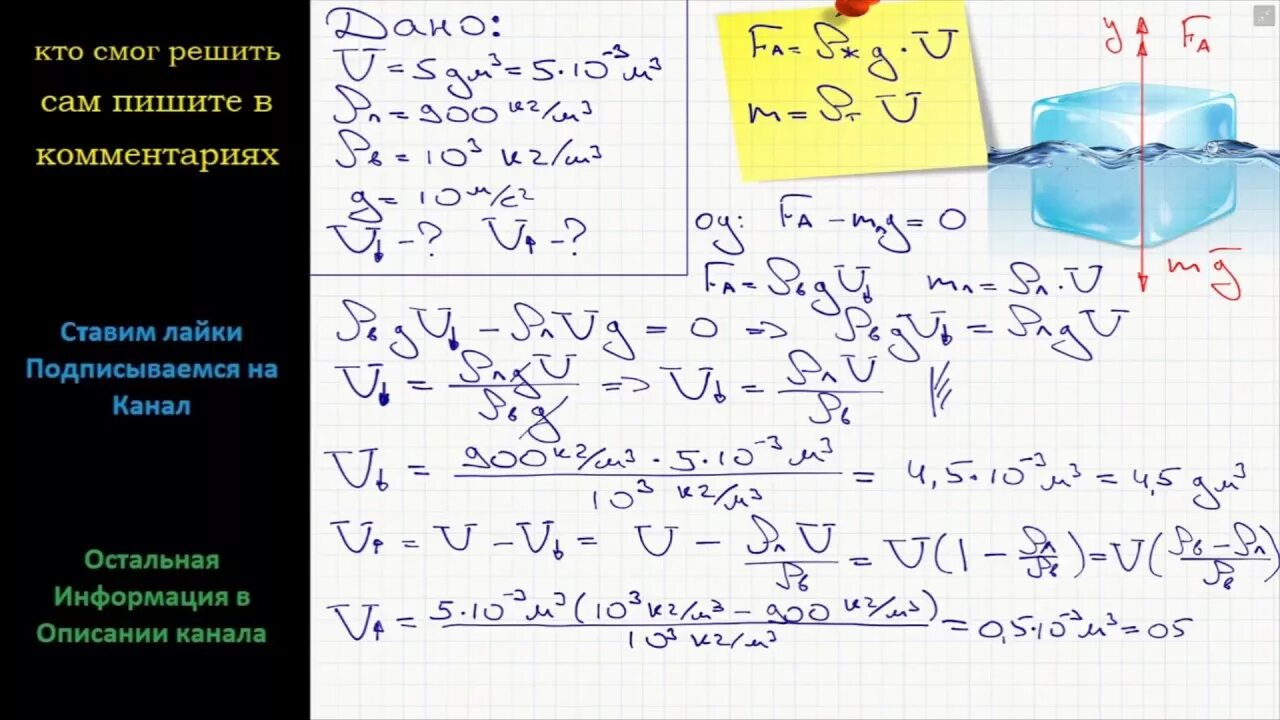 кто смог решить
сам пишите в
комментариях
Ставим лайки
Подписываемся на
Канал
Остальная
Информация в
Описании канала
Дано:
V = 5 дм³ = 5·10⁻³ м³
ρл = 900 кг/м³
ρв = 10³ кг/м³
g = 10 м/с²
V↓ - ? V↑ - ?
FA = ρж g · V
m = ρт V
y FA
mg
oy: FA - mлg = 0
FA = ρв g V↓ mл = ρл · V
ρв g V↓ - ρл V g = 0 => ρв g V↓ = ρл g V
V↓ = ρл g V / ρв g => V↓ = ρл V / ρв
V↓ = 900 кг/м³ · 5·10⁻³ м³ / 10³ кг/м³ = 4,5·10⁻³ м³ = 4,5 дм³
V↑ = V - V↓ = V - ρл V / ρв = V(1 - ρл/ρв) = V(ρв - ρл / ρв)
V↑ = 5·10⁻³ м³ (10³ кг/м³ - 900 кг/м³) / 10³ кг/м³ = 0,5·10⁻³ м³ = 05